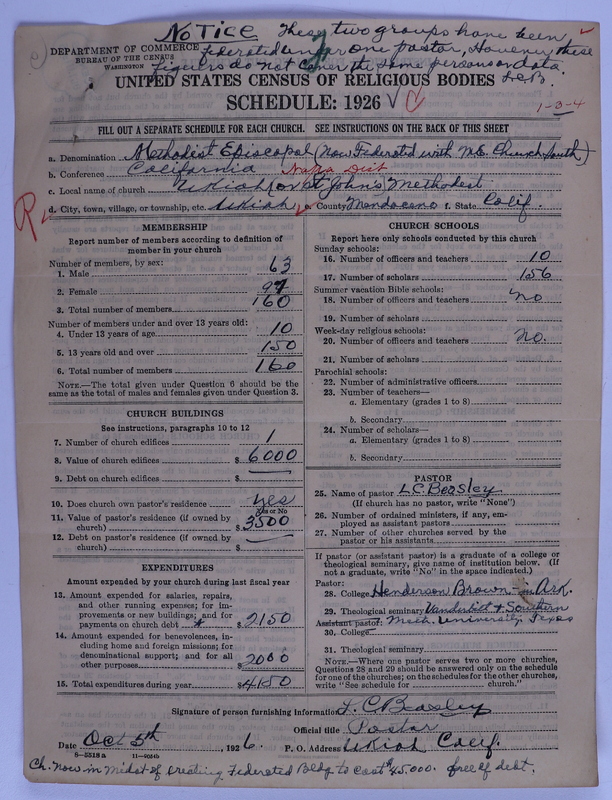 NOTICE These two groups have been
federated under one pastor, However these
figures do not cover the same persons or data.
L.C.B.
DEPARTMENT OF COMMERCE
BUREAU OF THE CENSUS
WASHINGTON
UNITED STATES CENSUS OF RELIGIOUS BODIES
SCHEDULE: 1926
1-3-4
FILL OUT A SEPARATE SCHEDULE FOR EACH CHURCH. SEE INSTRUCTIONS ON THE BACK OF THIS SHEET
a. Denomination Methodist Episcopal (Now Federated with M.E. Church South)
b. Conference California Napa Dist
c. Local name of church Ukiah (or St John's Methodist
d. City, town, village, or township, etc. Ukiah e. County Mendocino f. State Calif.
MEMBERSHIP
Report number of members according to definition of
member in your church
Number of members, by sex:
1. Male 63
2. Female 97
3. Total number of members 160
Number of members under and over 13 years old:
4. Under 13 years of age 10
5. 13 years old and over 150
6. Total number of members 160
NOTE.—The total given under Question 6 should be the
same as the total of males and females given under Question 3.
CHURCH BUILDINGS
See instructions, paragraphs 10 to 12
7. Number of church edifices 1
8. Value of church edifices $ 6000
9. Debt on church edifices $
10. Does church own pastor's residence yes
Yes or No
11. Value of pastor's residence (if owned by
church) $ 3500
12. Debt on pastor's residence (if owned by
church) $
EXPENDITURES
Amount expended by your church during last fiscal year
13. Amount expended for salaries, repairs,
and other running expenses; for im-
provements or new buildings; and for
payments on church debt $ 2150
14. Amount expended for benevolences, in-
cluding home and foreign missions; for
denominational support; and for all
other purposes $ 2000
15. Total expenditures during year $ 4150
CHURCH SCHOOLS
Report here only schools conducted by this church
Sunday schools:
16. Number of officers and teachers 10
17. Number of scholars 156
Summer vacation Bible schools:
18. Number of officers and teachers no
19. Number of scholars
Week-day religious schools:
20. Number of officers and teachers no.
21. Number of scholars
Parochial schools:
22. Number of administrative officers
23. Number of teachers—
a. Elementary (grades 1 to 8)
b. Secondary
24. Number of scholars—
a. Elementary (grades 1 to 8)
b. Secondary
PASTOR
25. Name of pastor L.C. Beasley
(If church has no pastor, write "None")
26. Number of ordained ministers, if any, em-
ployed as assistant pastors
27. Number of other churches served by the
pastor or his assistants
If pastor (or assistant pastor) is a graduate of a college or
theological seminary, give name of institution below. (If
not a graduate, write "No" in the space indicated.)
Pastor:
28. College Henderson Brown - in Ark.
29. Theological seminary Vanderbilt & Southern
Assistant pastor: Meth. University, Texas
30. College
31. Theological seminary
NOTE.—Where one pastor serves two or more churches,
Questions 28 and 29 should be answered only on the schedule
for one of the churches; on the schedules for the other churches,
write "See schedule for church."
Signature of person furnishing information L.C. Beasley
Official title Pastor
Date Oct 5th, 1926. P. O. Address Ukiah Calif.
8—5518 a 11—9054b
Ch. now in midst of erecting Federated Bldg. to cost $45.000. free of debt.